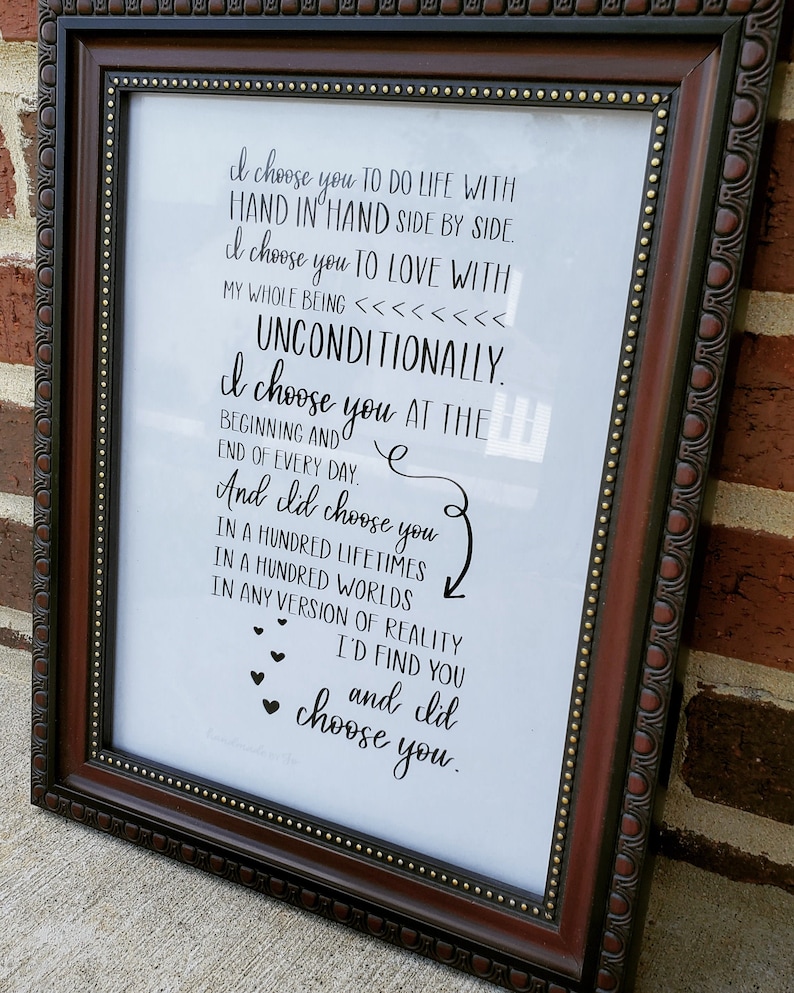 I choose you TO DO LIFE WITH
HAND IN HAND SIDE BY SIDE.
I choose you TO LOVE WITH
MY WHOLE BEING <<<<<<<<
UNCONDITIONALLY.
I choose you AT THE
BEGINNING AND
END OF EVERY DAY.
And I'd choose you
IN A HUNDRED LIFETIMES
IN A HUNDRED WORLDS
IN ANY VERSION OF REALITY
I'D FIND YOU
and I'd
choose you.